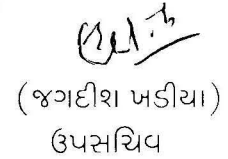 (જગદીશ ખડીયા)
ઉપસચિવ